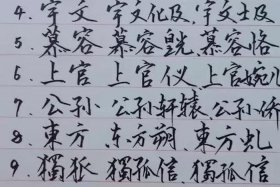 4、宇文 宇文化及、宇文士及
5、慕容 慕容皝、慕容恪
6、上官 上官仪、上官婉儿
7、公孙 公孙轩辕、公孙侨
8、東方 东方朔、東方虬
9、獨孤 獨孤信、獨孤信